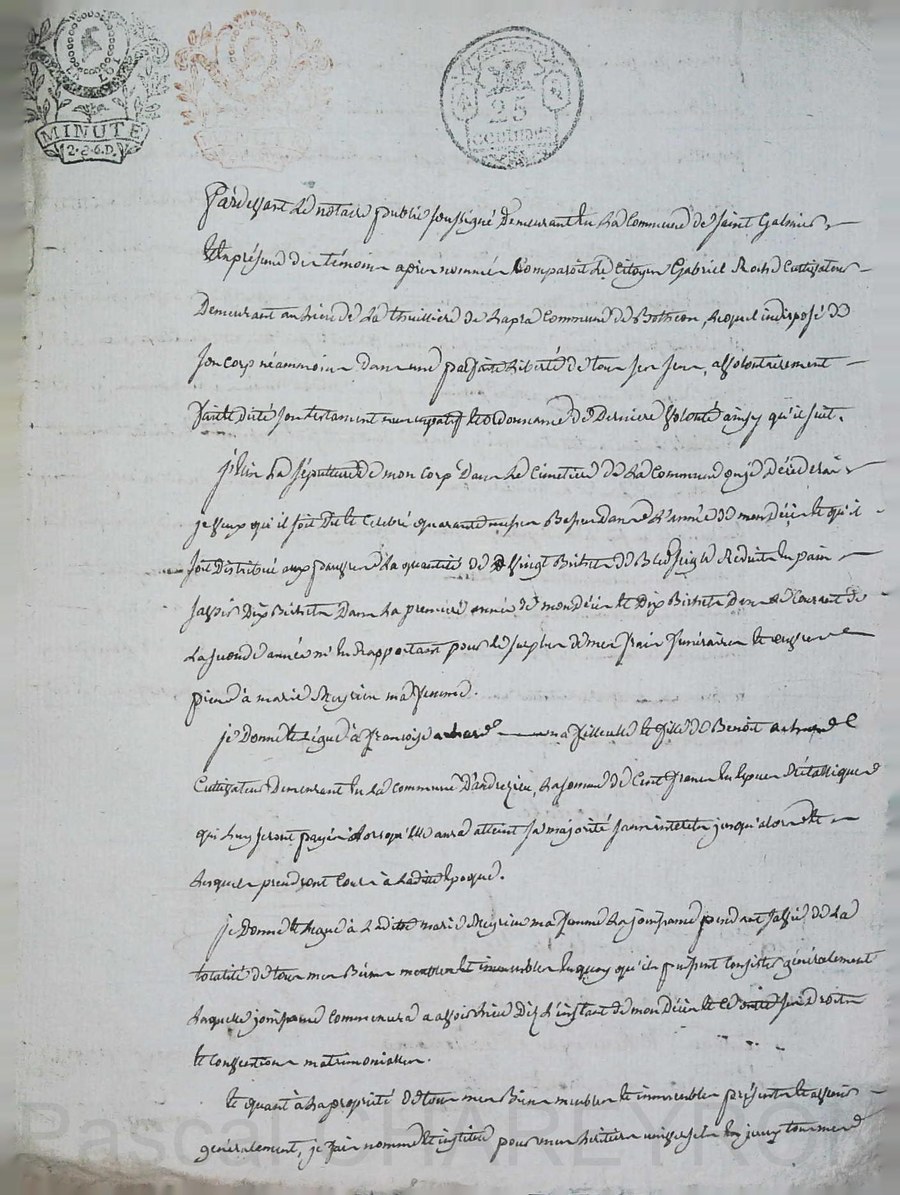 LA LOI
MINUTE
2.e 6.D.
25
centimes
Pardevant le notaire public soussigné demeurant en la commune de saint Galmier
et en présence des témoins après nommés Comparoit le citoyen Gabriel cultivateur
Demeurant au lieu de la thuillière de Lapra commune de Bothéon, lequel indisposé de
son corp néammoins dans une parfaite liberté de tous ses sens, a volontairement
fait et dicté son testament nuncupatif et ordonnance de derniere volonté ainsy qu'il suit.
j'élis la sépulture de mon corp Dans le cimetière de la commune ou je décéderai
je veux qu'il soit dit et célébré quarante messes Basses dans l'année de mon décès et qu'il
soit distribué aux pauvres la quantité de vingt Bichets de Bled seigle Réduits en pain
savoir Dix Bichets Dans la premiere année de mon décès et Dix Bichets dans le courant de
la seconde année m'en rapportant pour le surplus de mes frais funéraires et œuvres
pieuses à marie Meyrieu ma femme.
je Donne et légue à françoise ma filleule et fille de Benoit
cultivateur Demeurant en la commune D'andrezieu, la somme de cent francs en espèces métallique
qui luy seront payés lorsqu'elle aura atteint sa majorité sans interets jusqu'alors et
lesquels prendront cours à ladite époque.
je Donne et légue à Ladite marie Meyrieu ma femme la jouissance pendant sa vie de la
totalité de tous mes Biens meubles et immeubles en quoy qu'ils puissent consister généralement
laquelle jouissance commencera a avoir lieu Dès l'instant de mon Décès et ce outre ses droits
et conventions matrimoniales.
et quant à la propriété de tous mes Biens meubles et immeubles présents et avenir
généralement, je fais nomme et institue pour mes héritiers universels en jceux tous mes
Pascal CHAREYRON